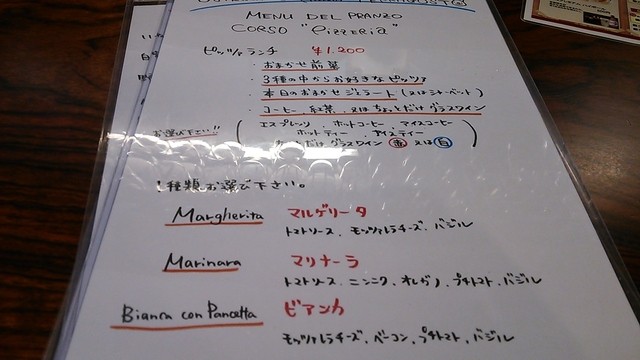 MENU DEL PRANZO
CORSO "PizzeRia"
ピッツァランチ ¥1.200
・おまかせ前菜
・3種の中からお好きなピッツァ
・本日のおまかせジェラート(又はシャーベット)
・コーヒー、紅茶、又はちょっとだけグラスワイン
お選び下さい!!
(エスプレッソ . ホットコーヒー アイスコーヒー
ホットティー アイスティー
だけグラスワイン 赤 又は 白)
1種類お選び下さい。
Margherita マルゲリータ
トマトソース、モッツァレラチーズ、バジル
Marinara マリナーラ
トマトソース、ニンニク、オレガノ、プチトマト、バジル
Bianca con Pancetta ビアンカ
モッツァレラチーズ、ベーコン、プチトマト、バジル